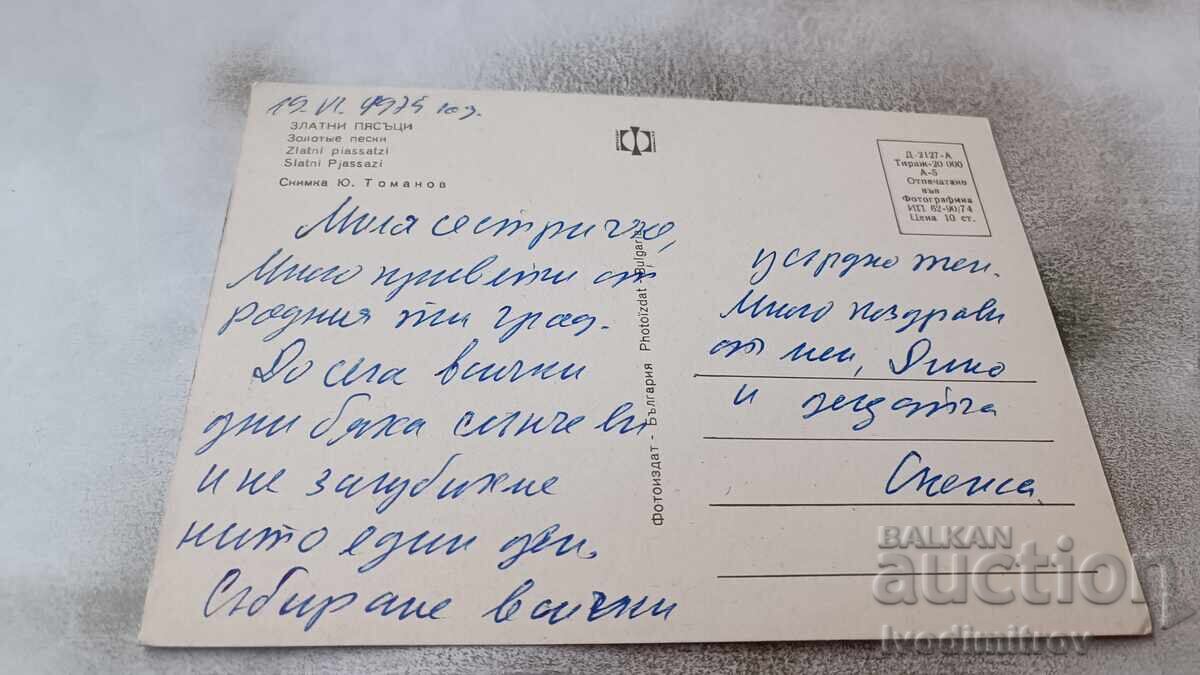 19. VI. 1975 год.
ЗЛАТНИ ПЯСЪЦИ
Золотые пески
Zlatni piassatzi
Slatni Pjassazi
Снимка Ю. Томанов
Мила сестричке,
Много привети от
родния ти град.
До сега всички
дни бяха слънчеви
и не загубихме
нито един ден.
Събираме всички
Фотоиздат - България Photoizdat - Bulgaria
Д-3127-А
Тираж-20 000
А-5
Отпечатано
във
Фотографика
ИП. 62-90/74
Цена 10 ст.
усърдно тен.
Много поздрави
от мен, Дико
и децата
Снежа
BALKAN
auction
Ivodimitrov